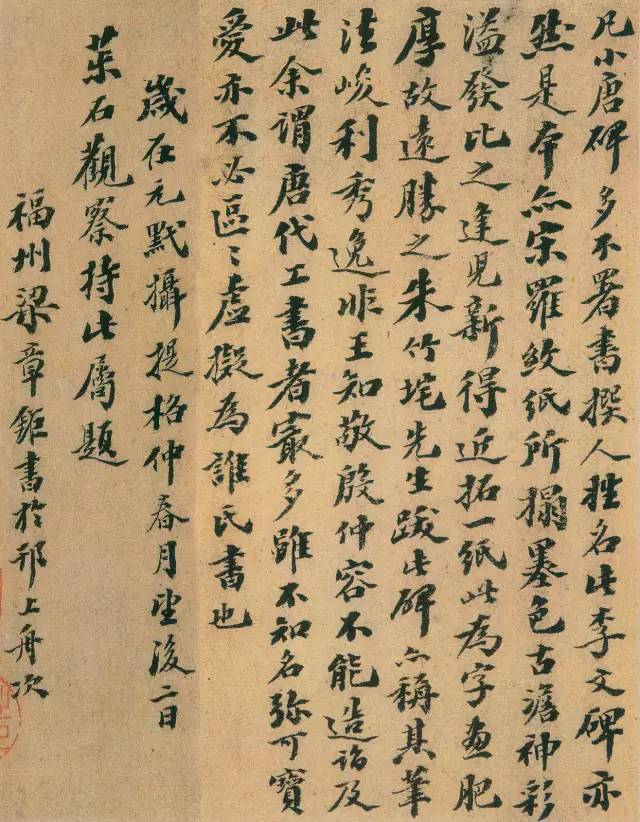 凡小唐碑多不署書撰人姓名此李文碑亦
然是本亦宋羅紋紙所搨墨色古澹神彩
溢發比之逢見新得近拓一紙此為字畫肥
厚故遠勝之朱竹垞先生跋此碑亦稱其筆
法峻利秀逸非王知敬殷仲容不能造詣及
此余謂唐代工書者寂多雖不知名弥可寶
愛亦不必區〻虛擬為誰氏書也
歲在元黓攝提格仲春月望後二日
茮石觀察持此屬題
福州梁章鉅書於邗上舟次